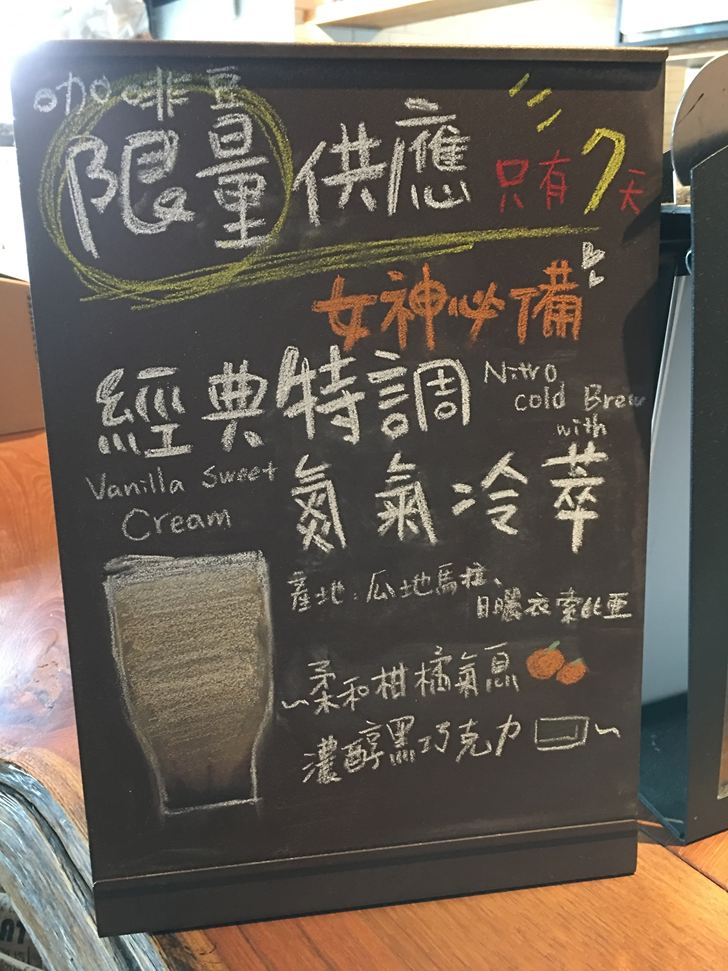 咖啡豆
限量供應 只有7天
女神必備
經典特調 Nitro
cold Brew
with
Vanilla Sweet
Cream
氮氣冷萃
產地:瓜地馬拉、
日曬衣索比亞
~柔和柑橘氣息
濃醇黑巧克力~